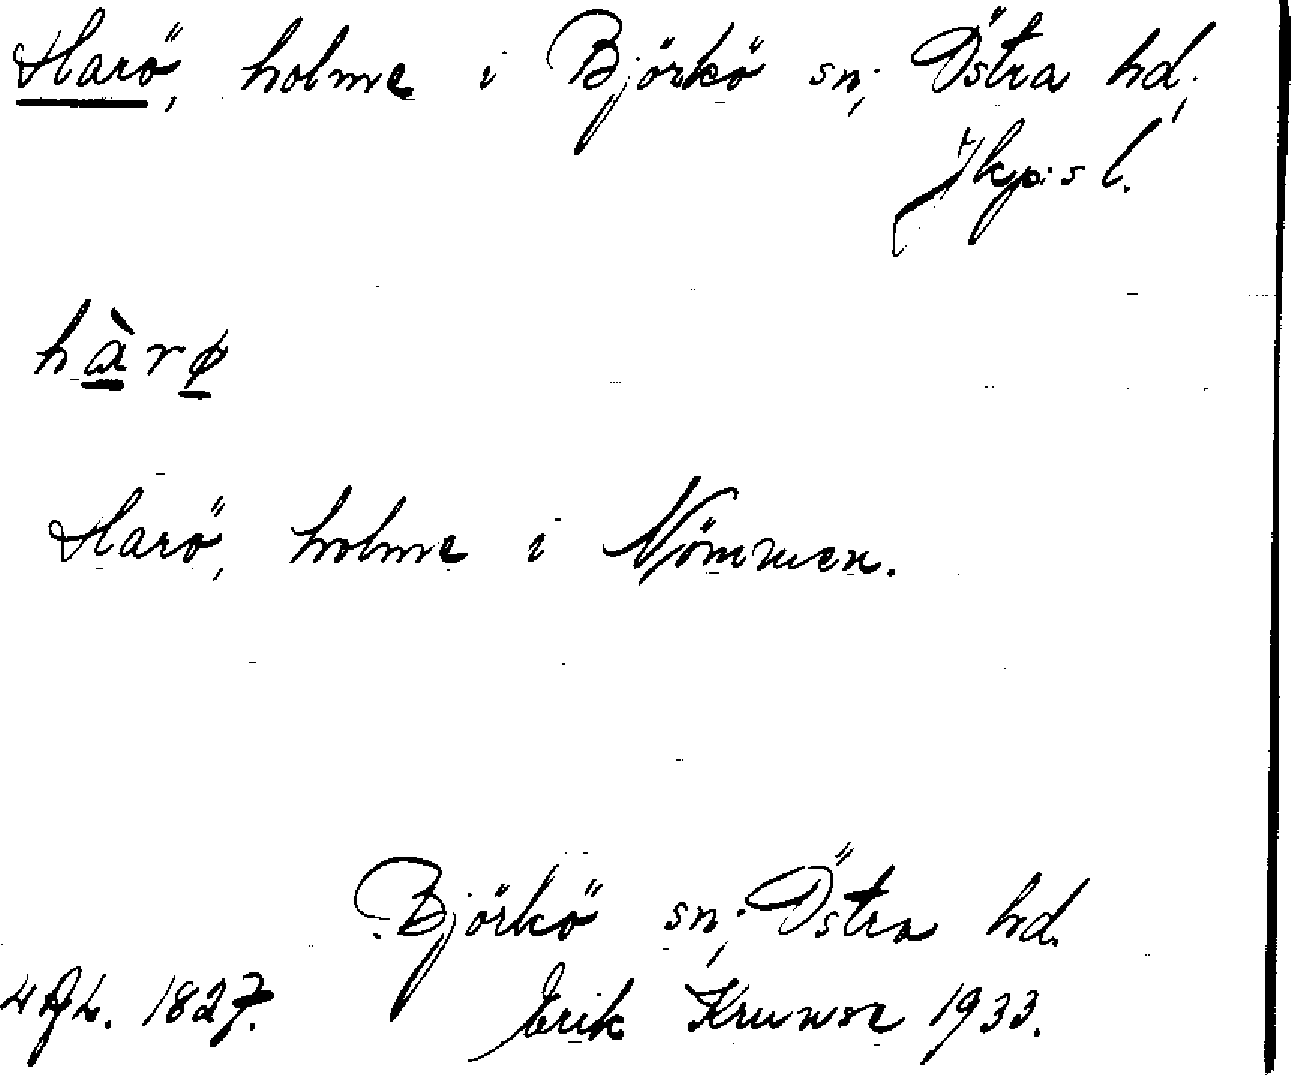 Harö, holme i Björkö sn, Östra hd,
Jkp:s l.
hàrø
Harö, holme i Nömmen.
Björkö sn, Östra hd.
1827. Erik 1933.